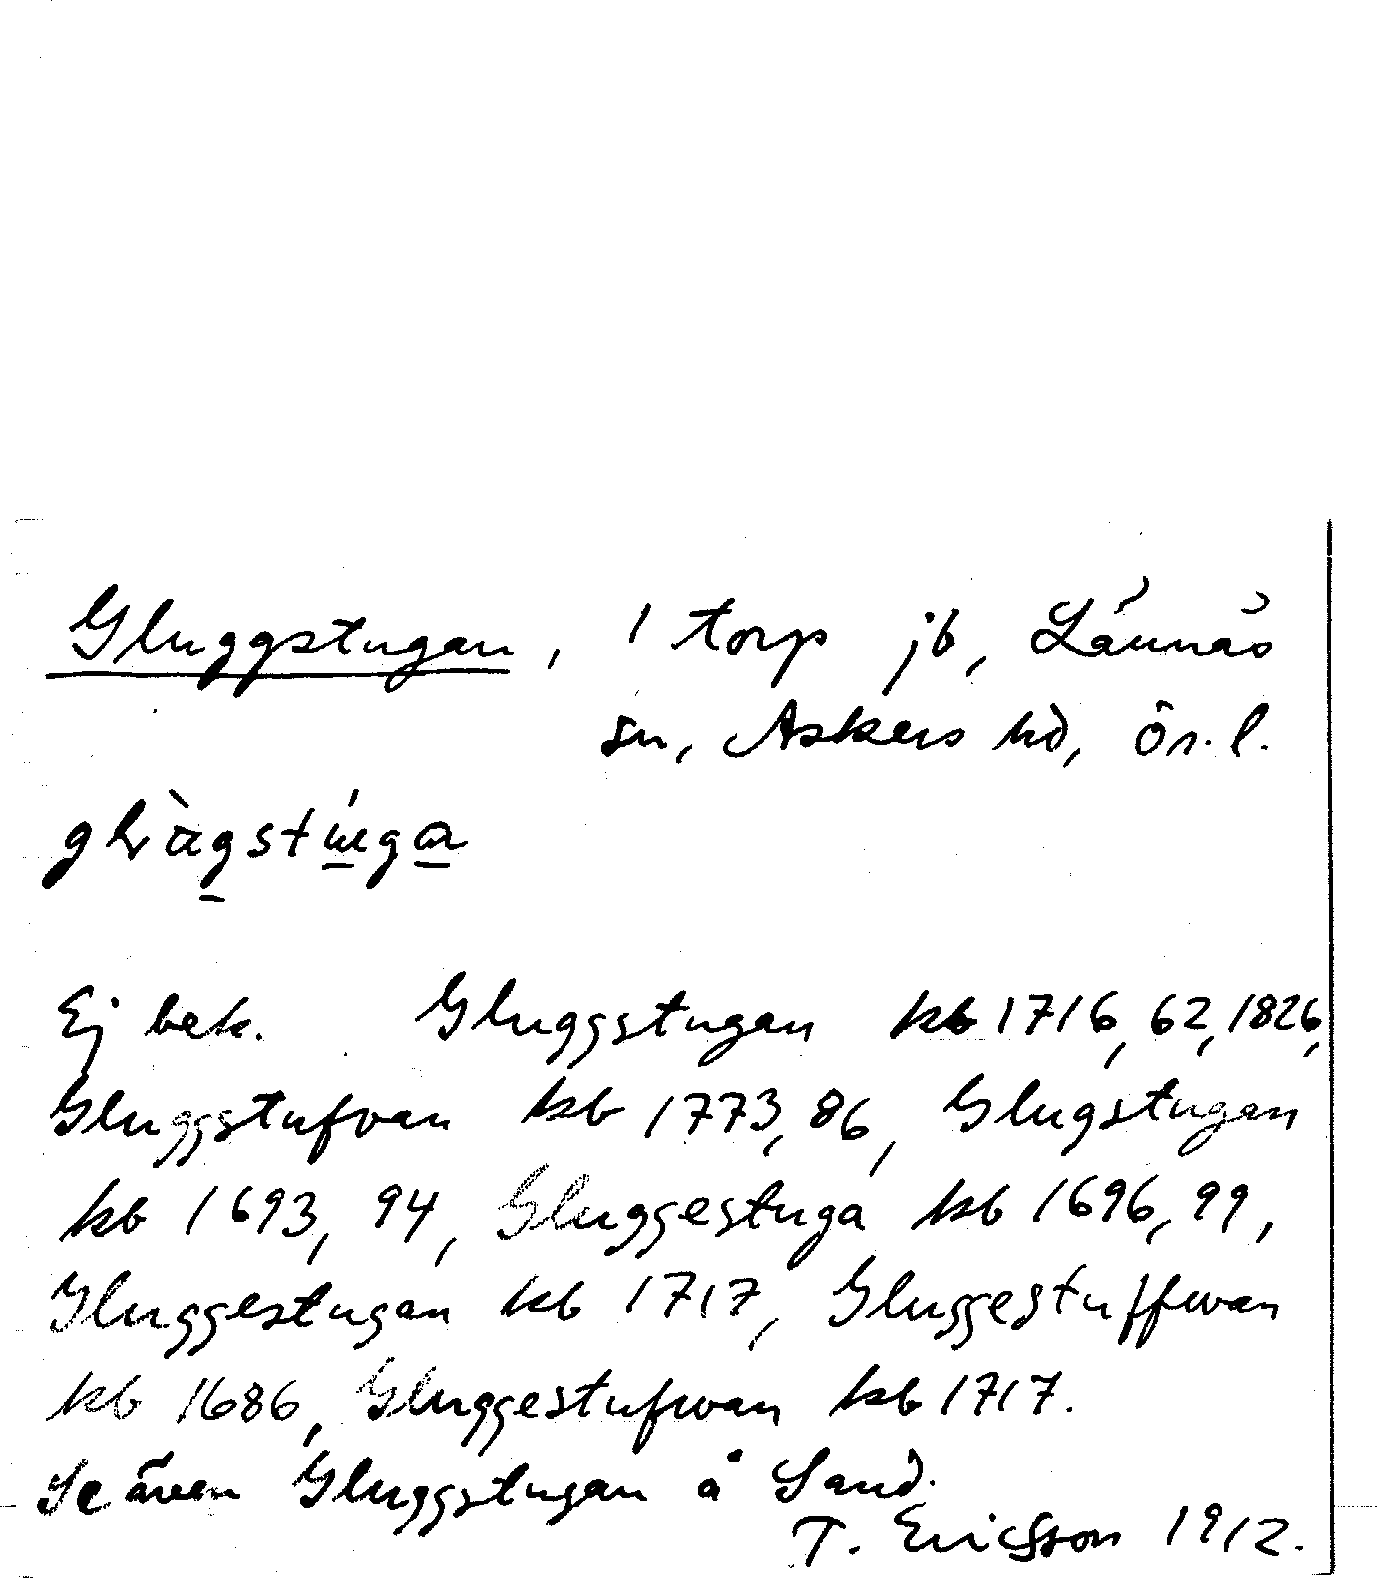 Gluggstugan, 1 torp jb, Lännäs
sn, Askers hd, Ör. l.
Ej bek. Gluggstugan kb 1716, 62, 1826,
Gluggstufvan kb 1773, 86, Glugstugan
kb 1693, 94, Gluggestuga kb 1696, 99,
Gluggestugan kb 1717, Gluggestuffwan
kb 1686, Gluggestufwan kb 1717.
Se även Gluggstugan å Sand.
T. Ericsson 1912.